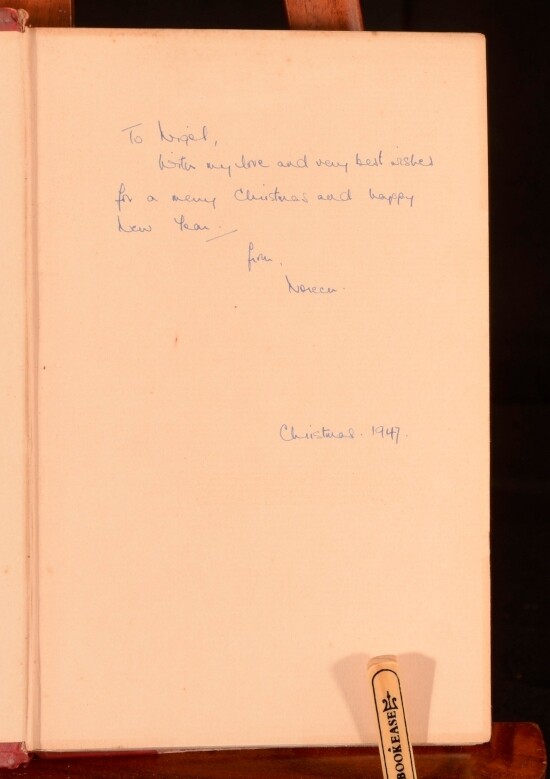 To Nigel,
With my love and very best wishes
for a merry Christmas and happy
New Year.
from.
Noreen.
Christmas. 1947.
BOOKEASE